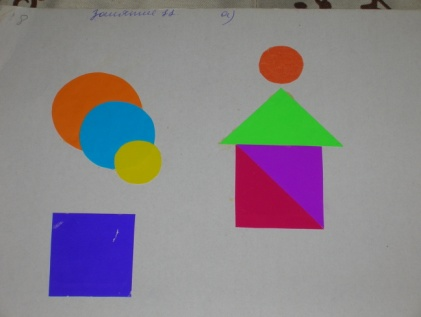 18 Занятие 11 а)